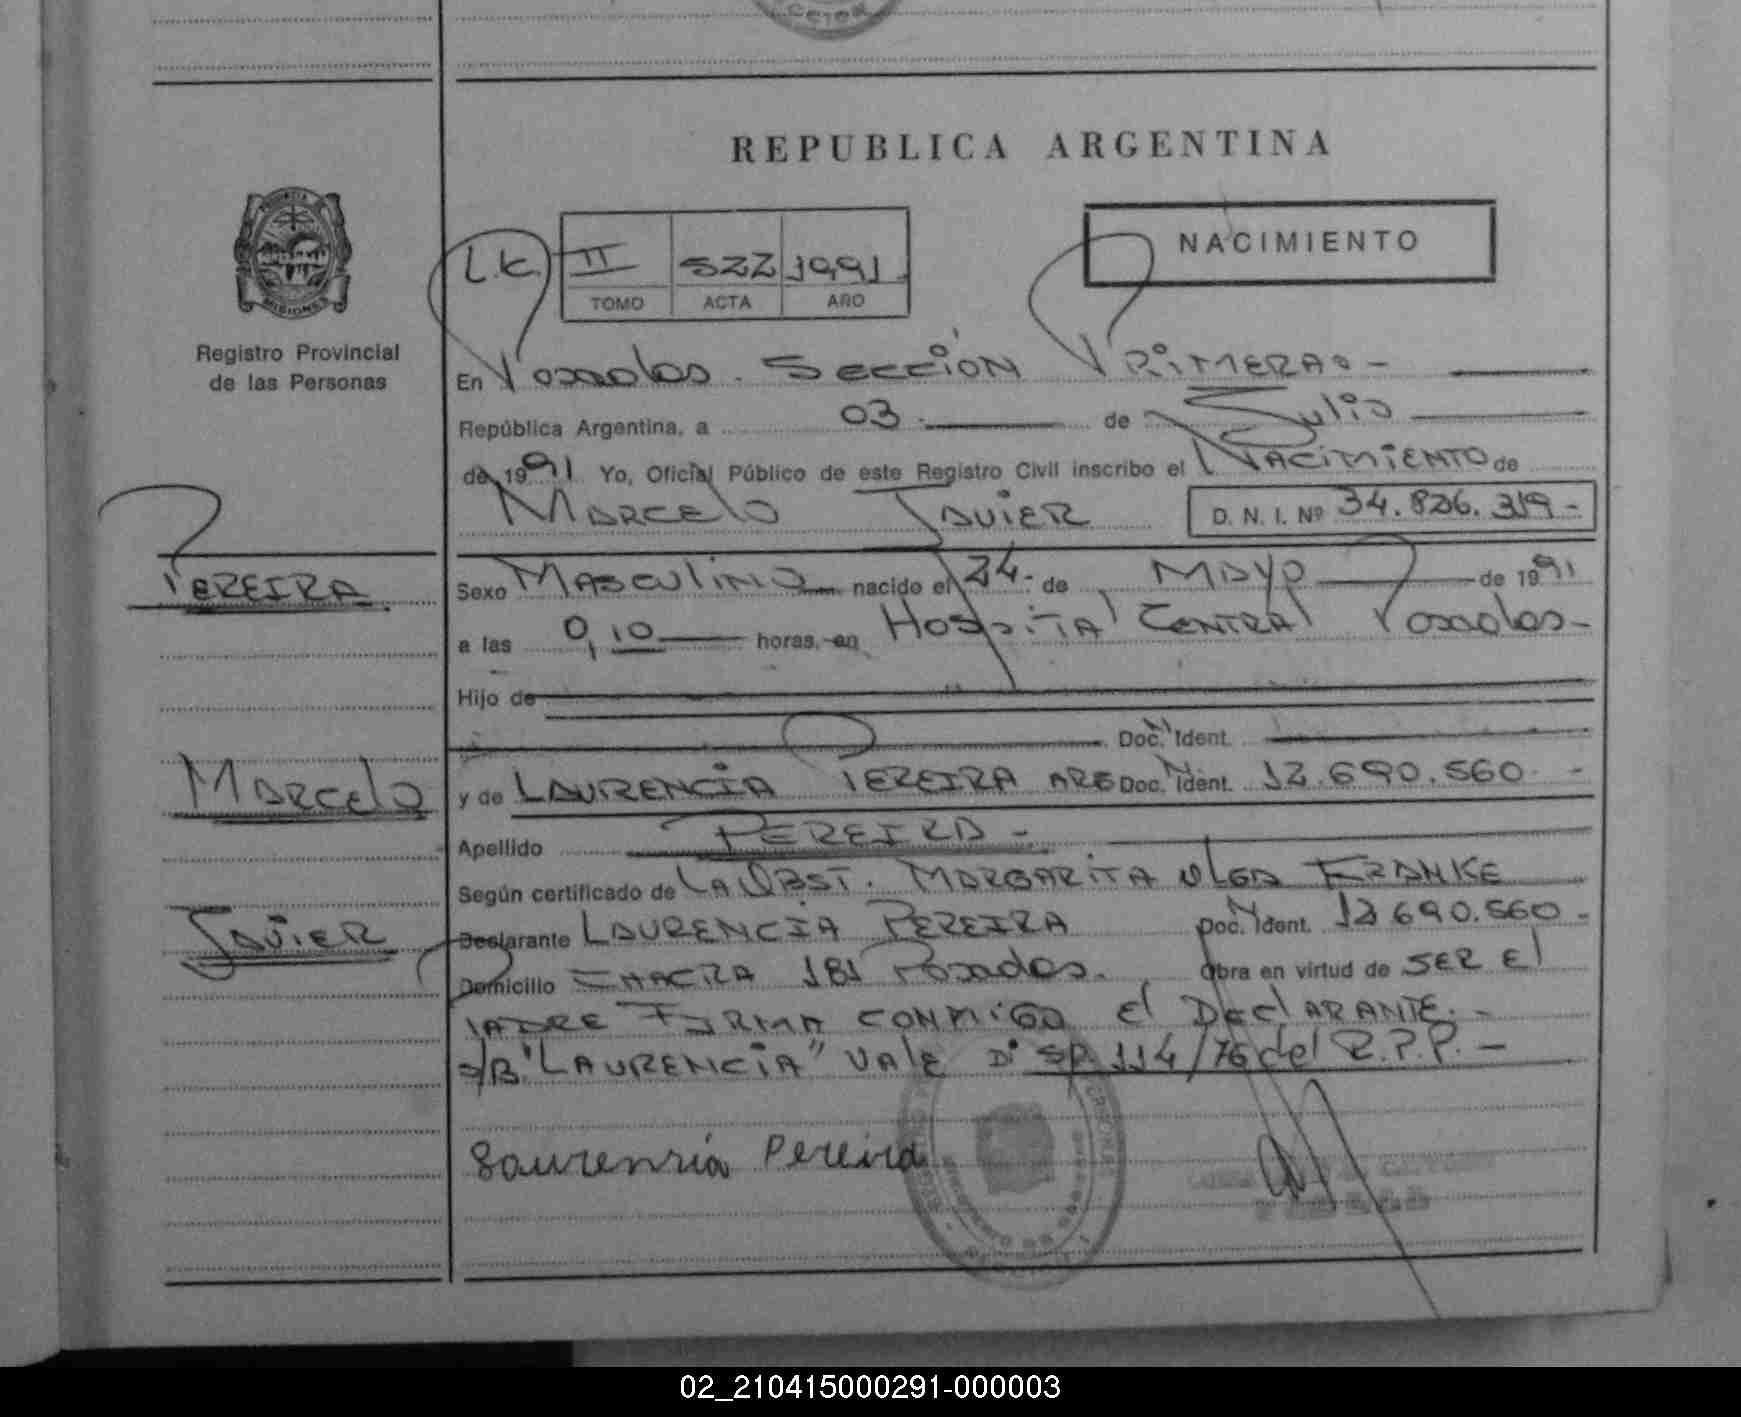 REPUBLICA ARGENTINA
NACIMIENTO
L.K. II 522 1991
TOMO ACTA AÑO
PROVINCIA DE MISIONES
Registro Provincial
de las Personas
En Posadas. SECCIÓN PRIMERA.-
República Argentina, a 03. de Julio
de 1991 Yo, Oficial Público de este Registro Civil inscribo el NACIMIENTO de
MARCELO JAVIER D. N. I. Nº 34.826.319-
PEREIRA
Sexo MASCULINO nacido el 24. de MAYO de 1991
a las 0,10 horas, en HOSPITAL CENTRAL Posadas-
Hijo de
Doc. Ident.
MARCELO
y de LAURENCIA PEREIRA ARG Doc. Ident. 12.690.560 -
Apellido PEREIRA -
Según certificado de LA OBST. MARGARITA OLGA FRANKE
JAVIER
Declarante LAURENCIA PEREIRA Doc. Ident. 12.690.560 -
Domicilio CHACRA 181 Posadas. Obra en virtud de SER El
PADRE FIRMA CONMIGO El DEClARANTE. -
S/B "LAURENCIA" VALE Dº SP. 114/76 del R.P.P. -
Laurencia Pereira
02_210415000291-000003